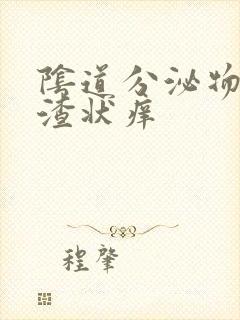 陰道分泌物
渣状痒
程肇